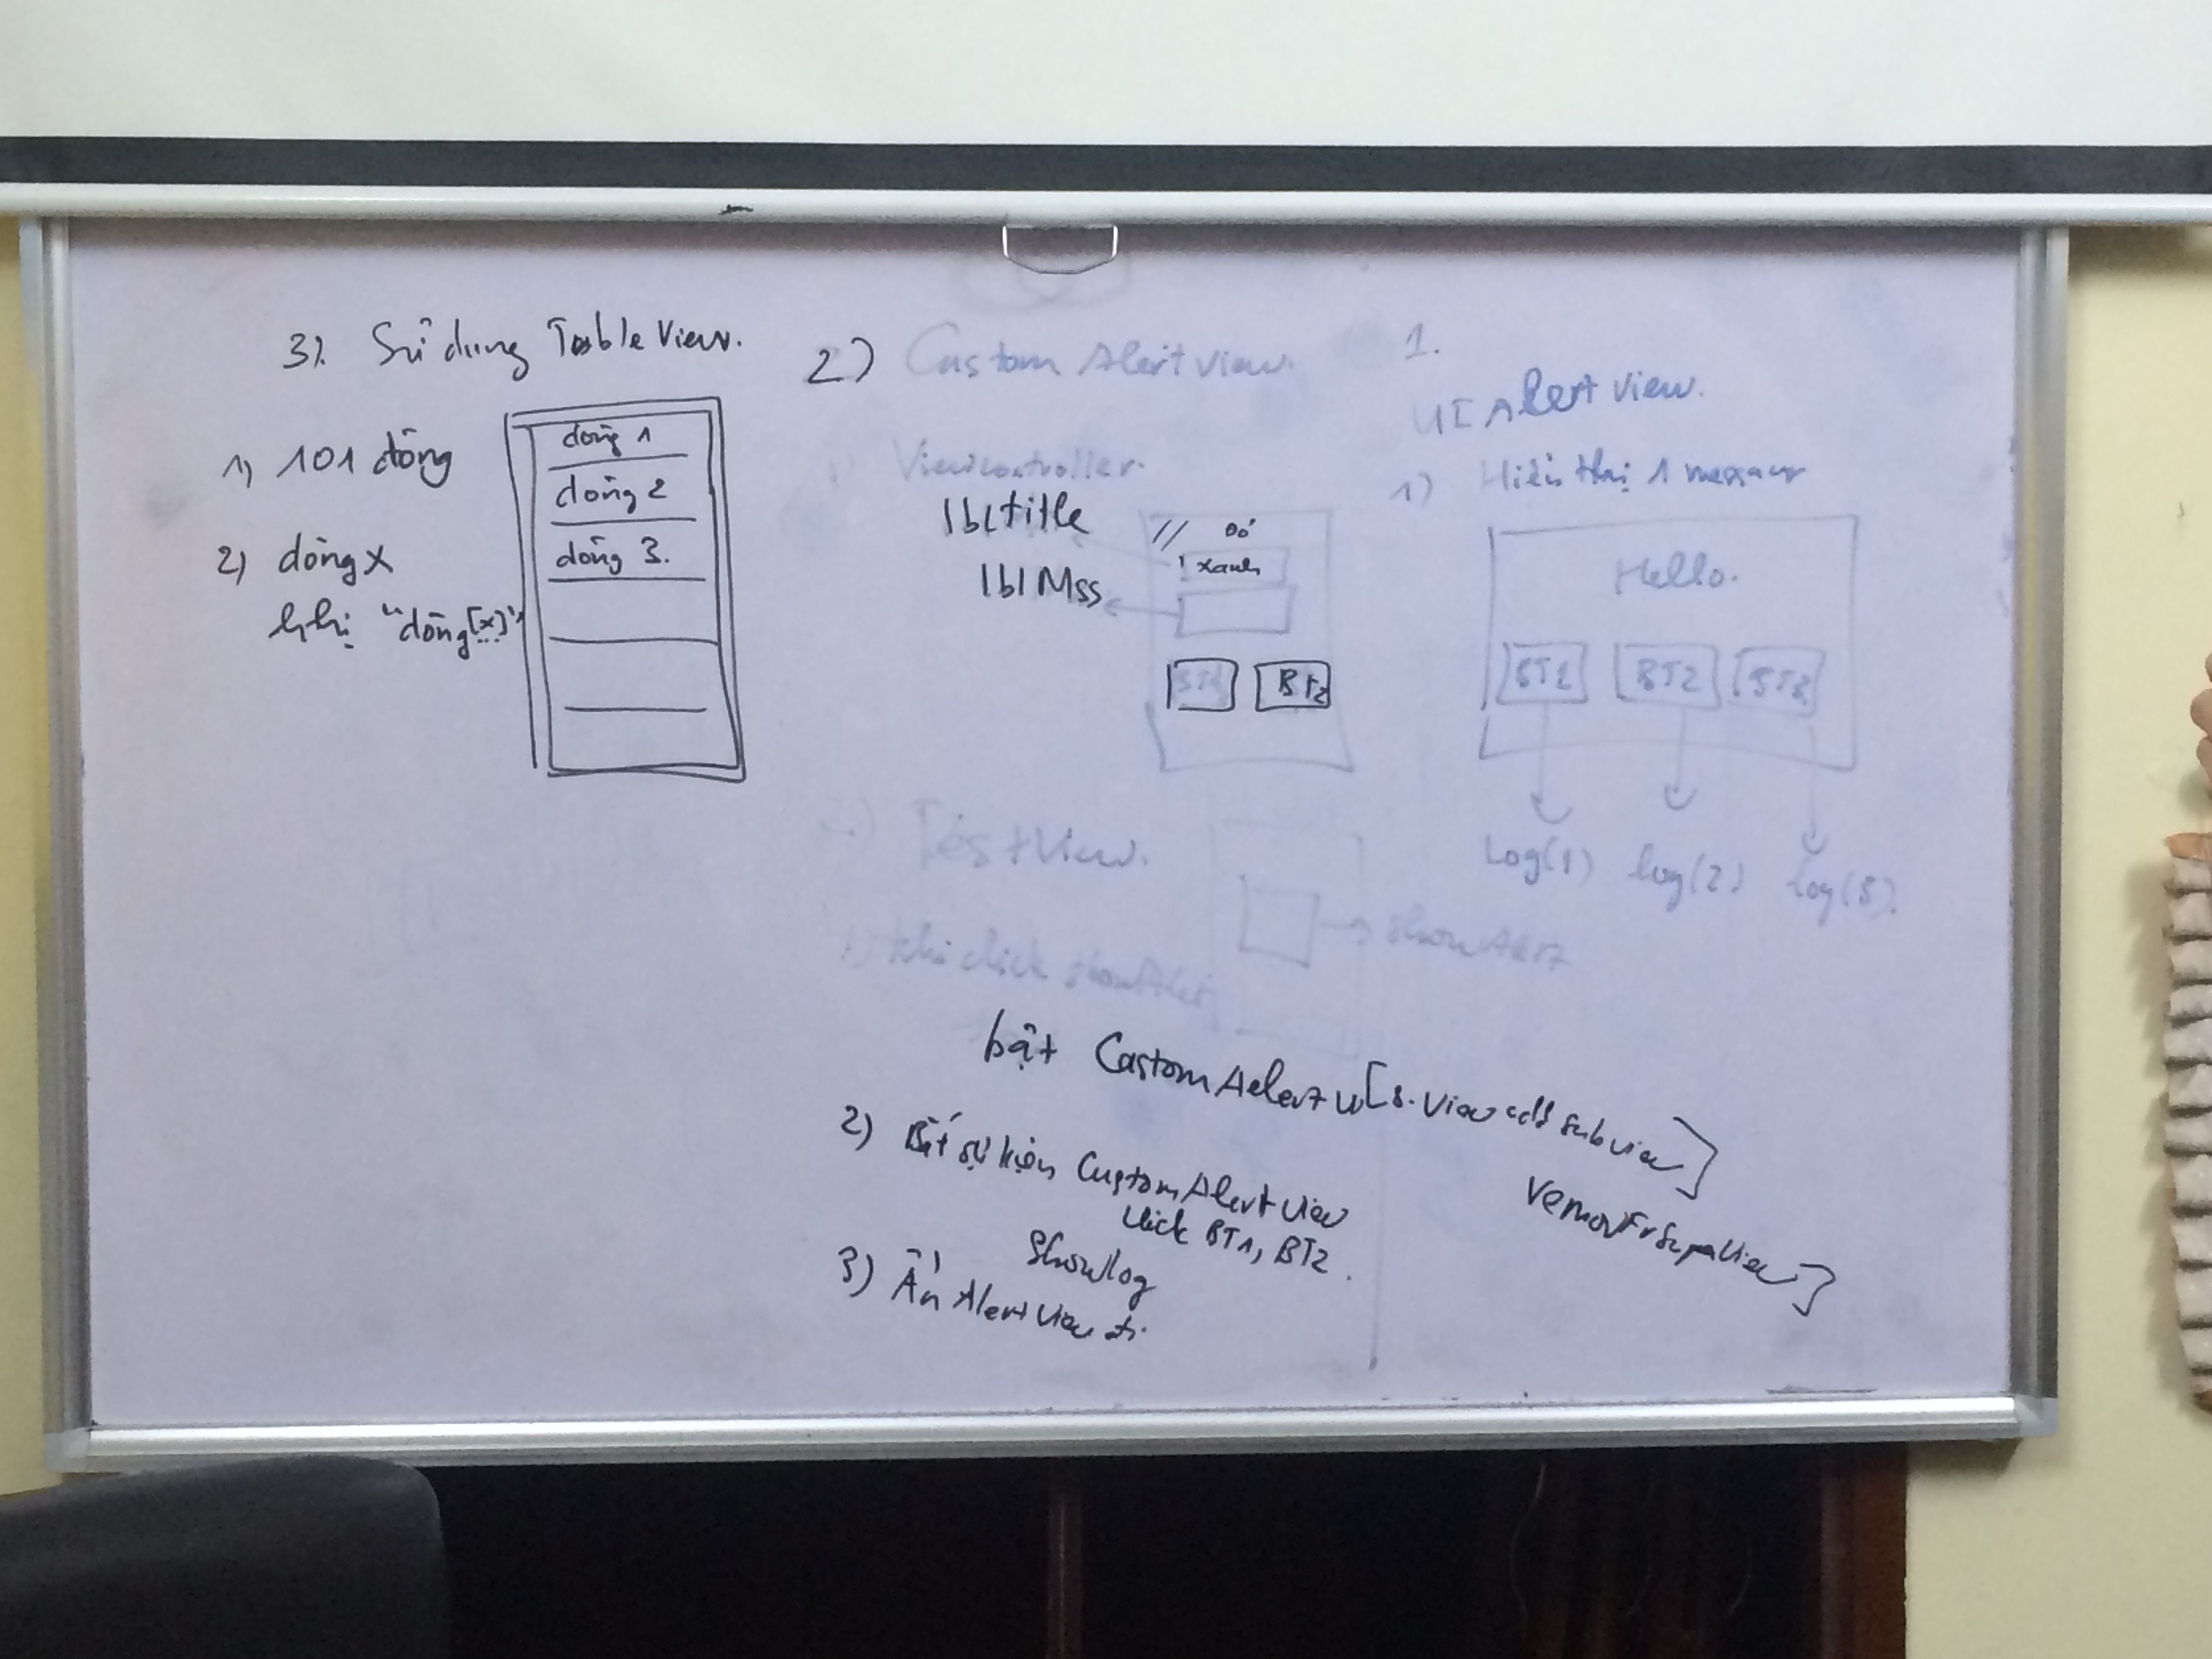 3). Sử dụng TableView.
1) 101 dòng
2) dòng x
hthị "dòng [x]"
dòng 1
dòng 2
dòng 3.
2) Custom Alert view.
1) Viewcontroller.
lbl title
lbl Mss
// Đỏ
xanh
BT1 BT2
2.) TestView.
showAlert
1) khi click showAlert
bật CastomAelert w [s.view add subview]
removFrSupaView]
2) Bắt sự kiện CustomAlertview
click BT1, BT2.
Showlog
3) Ẩn AlertView đi.
1.
UI Alert view.
1) Hiển thị 1 message
Hello.
BT1 BT2 BT3
Log(1) log(2) log(3).